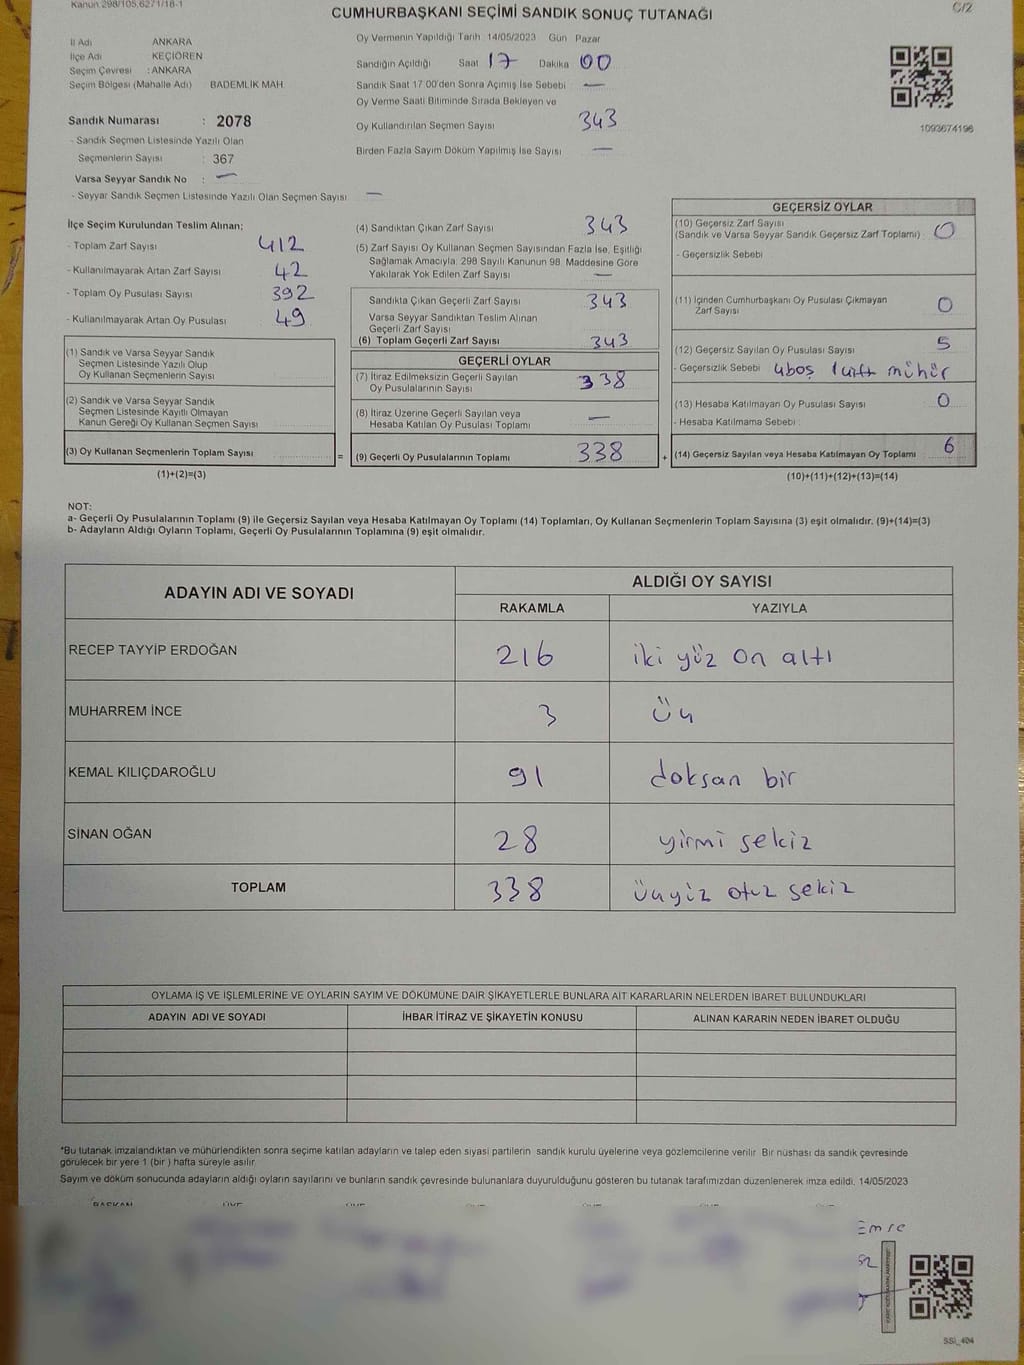 Kanun 298/105,6271/18-1
C/2
CUMHURBAŞKANI SEÇİMİ SANDIK SONUÇ TUTANAĞI
İl Adı ANKARA
İlçe Adı KEÇİÖREN
Seçim Çevresi : ANKARA
Seçim Bölgesi (Mahalle Adı) BADEMLİK MAH.
Sandık Numarası : 2078
- Sandık Seçmen Listesinde Yazılı Olan
Seçmenlerin Sayısı : 367
Varsa Seyyar Sandık No : —
- Seyyar Sandık Seçmen Listesinde Yazılı Olan Seçmen Sayısı —
Oy Vermenin Yapıldığı Tarih 14/05/2023 Gün Pazar
Sandığın Açıldığı Saat 17 Dakika 00
Sandık Saat 17 00'den Sonra Açımış İse Sebebi —
Oy Verme Saati Bitiminde Sırada Bekleyen ve
Oy Kullandırılan Seçmen Sayısı 343
Birden Fazla Sayım Döküm Yapılmış İse Sayısı —
1093674196
İlçe Seçim Kurulundan Teslim Alınan;
- Toplam Zarf Sayısı 412
- Kullanılmayarak Artan Zarf Sayısı 42
- Toplam Oy Pusulası Sayısı 392
- Kullanılmayarak Artan Oy Pusulası 49
(1) Sandık ve Varsa Seyyar Sandık
Seçmen Listesinde Yazılı Olup
Oy Kullanan Seçmenlerin Sayısı
(2) Sandık ve Varsa Seyyar Sandık
Seçmen Listesinde Kayıtlı Olmayan
Kanun Gereği Oy Kullanan Seçmen Sayısı
(3) Oy Kullanan Seçmenlerin Toplam Sayısı
(1)+(2)=(3)
=
(4) Sandıktan Çıkan Zarf Sayısı 343
(5) Zarf Sayısı Oy Kullanan Seçmen Sayısından Fazla İse, Eşitliği
Sağlamak Amacıyla; 298 Sayılı Kanunun 98. Maddesine Göre
Yakılarak Yok Edilen Zarf Sayısı —
Sandıkta Çıkan Geçerli Zarf Sayısı 343
Varsa Seyyar Sandıktan Teslim Alınan
Geçerli Zarf Sayısı
(6) Toplam Geçerli Zarf Sayısı 343
GEÇERLİ OYLAR
(7) İtiraz Edilmeksizin Geçerli Sayılan
Oy Pusulalarının Sayısı 338
(8) İtiraz Üzerine Geçerli Sayılan veya
Hesaba Katılan Oy Pusulası Toplamı —
(9) Geçerli Oy Pusulalarının Toplamı 338
+
GEÇERSİZ OYLAR
(10) Geçersiz Zarf Sayısı
(Sandık ve Varsa Seyyar Sandık Geçersiz Zarf Toplamı) 0
- Geçersizlik Sebebi
(11) İçinden Cumhurbaşkanı Oy Pusulası Çıkmayan
Zarf Sayısı 0
(12) Geçersiz Sayılan Oy Pusulası Sayısı 5
- Geçersizlik Sebebi 4boş 1 çift mühür
(13) Hesaba Katılmayan Oy Pusulası Sayısı 0
- Hesaba Katılmama Sebebi
(14) Geçersiz Sayılan veya Hesaba Katılmayan Oy Toplamı 6
(10)+(11)+(12)+(13)=(14)
NOT:
a- Geçerli Oy Pusulalarının Toplamı (9) ile Geçersiz Sayılan veya Hesaba Katılmayan Oy Toplamı (14) Toplamları, Oy Kullanan Seçmenlerin Toplam Sayısına (3) eşit olmalıdır. (9)+(14)=(3)
b- Adayların Aldığı Oyların Toplamı, Geçerli Oy Pusulalarının Toplamına (9) eşit olmalıdır.
ADAYIN ADI VE SOYADI ALDIĞI OY SAYISI
RAKAMLA YAZIYLA
RECEP TAYYİP ERDOĞAN 216 iki yüz on altı
MUHARREM İNCE 3 üç
KEMAL KILIÇDAROĞLU 91 doksan bir
SİNAN OĞAN 28 yirmi sekiz
TOPLAM 338 üçyüz otuz sekiz
OYLAMA İŞ VE İŞLEMLERİNE VE OYLARIN SAYIM VE DÖKÜMÜNE DAİR ŞİKAYETLERLE BUNLARA AİT KARARLARIN NELERDEN İBARET BULUNDUKLARI
ADAYIN ADI VE SOYADI İHBAR İTİRAZ VE ŞİKAYETİN KONUSU ALINAN KARARIN NEDEN İBARET OLDUĞU
*Bu tutanak imzalandıktan ve mühürlendikten sonra seçime katılan adayların ve talep eden siyasi partilerin sandık kurulu üyelerine veya gözlemcilerine verilir. Bir nüshası da sandık çevresinde
görülecek bir yere 1 (bir ) hafta süreyle asılır
Sayım ve döküm sonucunda adayların aldığı oyların sayılarını ve bunların sandık çevresinde bulunanlara duyurulduğunu gösteren bu tutanak tarafımızdan düzenlenerek imza edildi. 14/05/2023
BAŞKAN ÜYE ÜYE ÜYE ÜYE ÜYE ÜYE
Emre
SSİ_404